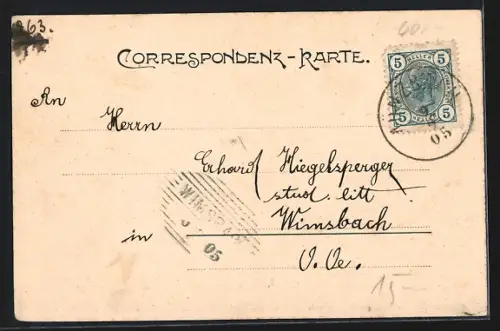 863.
60.-
CORRESPONDENZ-KARTE.
5 HELLER 5
5 HELLER 5
05
An
Herrn
Erhard Hiegelsperger
stud. litt
WIMSBACH
05
in Wimsbach
O. Oe.
15-